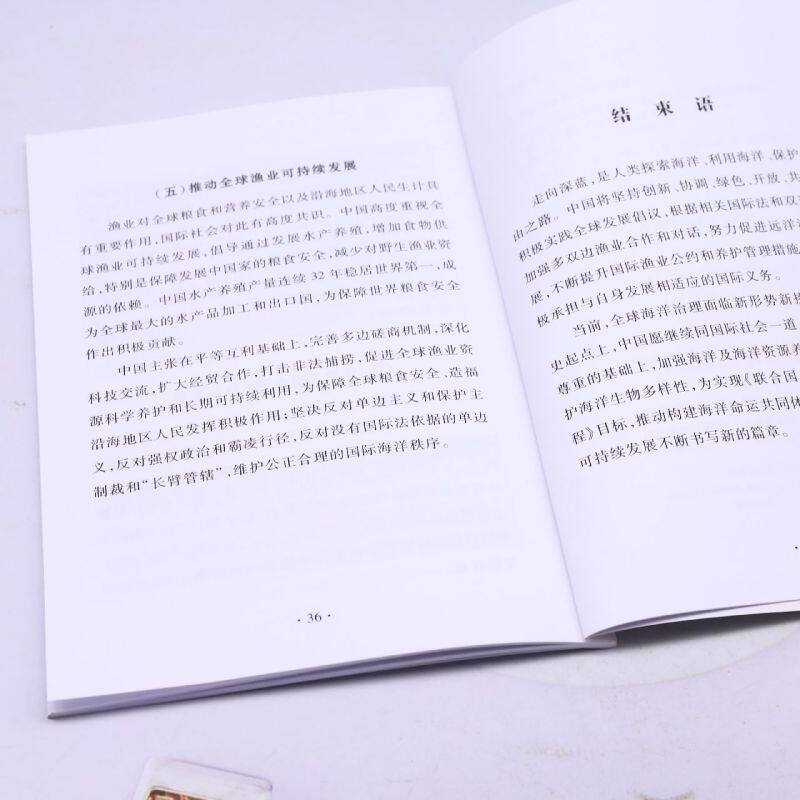 （五）推动全球渔业可持续发展
渔业对全球粮食和营养安全以及沿海地区人民生计具
有重要作用，国际社会对此有高度共识。中国高度重视全
球渔业可持续发展，倡导通过发展水产养殖，增加食物供
给，特别是保障发展中国家的粮食安全，减少对野生渔业资
源的依赖。中国水产养殖产量连续32年稳居世界第一，成
为全球最大的水产品加工和出口国，为保障世界粮食安全
作出积极贡献。
中国主张在平等互利基础上，完善多边磋商机制，深化
科技交流，扩大经贸合作，打击非法捕捞，促进全球渔业资
源科学养护和长期可持续利用，为保障全球粮食安全、造福
沿海地区人民发挥积极作用；坚决反对单边主义和保护主
义，反对强权政治和霸凌行径，反对没有国际法依据的单边
制裁和“长臂管辖”，维护公正合理的国际海洋秩序。
·36·
结束语
走向深蓝，是人类探索海洋、利用海洋、保护
由之路。中国将坚持创新、协调、绿色、开放、共
积极实践全球发展倡议，根据相关国际法和双
加强多双边渔业合作和对话，努力促进远洋
展，不断提升国际渔业公约和养护管理措施
极承担与自身发展相适应的国际义务。
当前，全球海洋治理面临新形势新
史起点上，中国愿继续同国际社会一道
尊重的基础上，加强海洋及海洋资源养
护海洋生物多样性，为实现《联合国
程》目标，推动构建海洋命运共同体
可持续发展不断书写新的篇章。